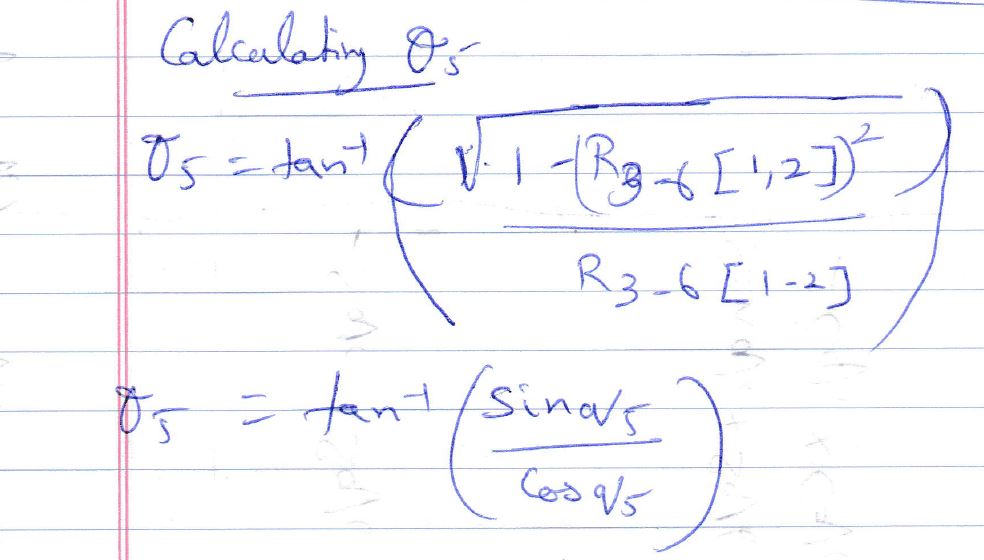 Calculating θ5
θ5 = tan⁻¹ ( √ 1 - (R3-6 [1,2])²
R3-6 [1-2] )
θ5 = tan⁻¹ ( sin q5
cos q5 )